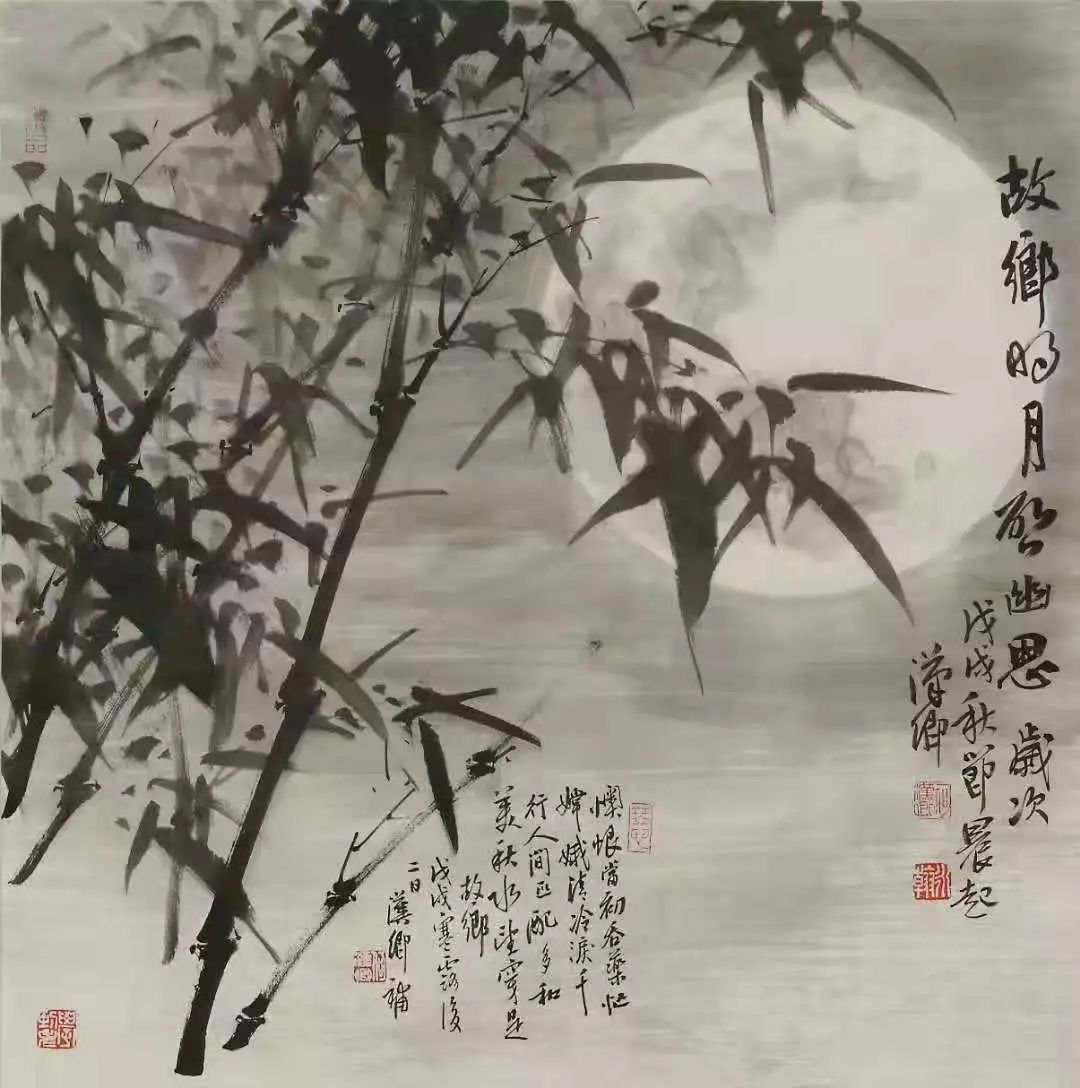 故鄉明月啓幽思 歲次
戊戌秋節晨起
漢卿
恨當初吞藥忙
嫦娥清冷淚千
行人間匹配多和
美秋水望穿是
故鄉
戊戌寒露後
二日漢卿補